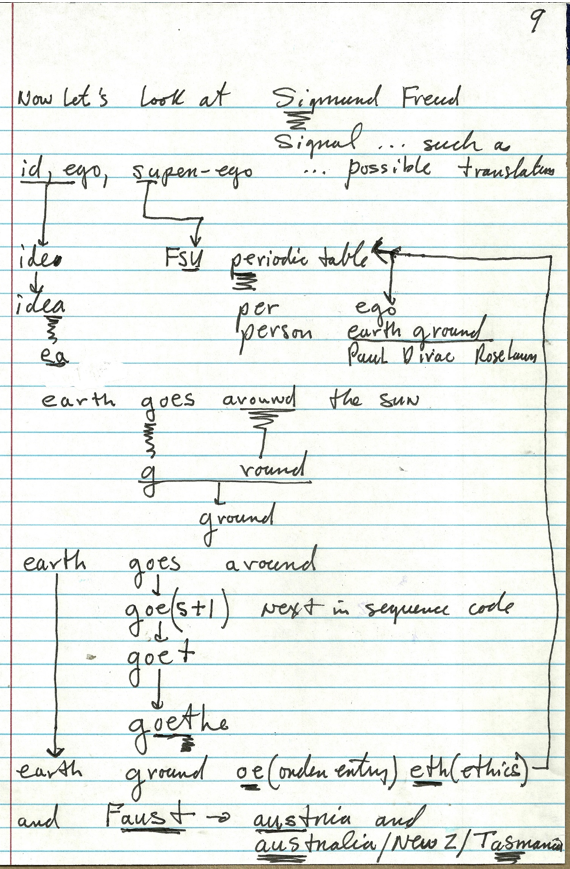 9
Now let's look at Sigmund Freud
Signal ... such as
id, ego, super-ego ... possible translation
ideo FSU periodic table
idea per ego
person earth ground
ea Paul Dirac Rosebaum
earth goes around the sun
g round
ground
earth goes around
goe(s+1) next in sequence code
goet
goethe
earth ground oe(order entry) eth(ethics)
and Faust → austria and
australia/New Z/Tasmania